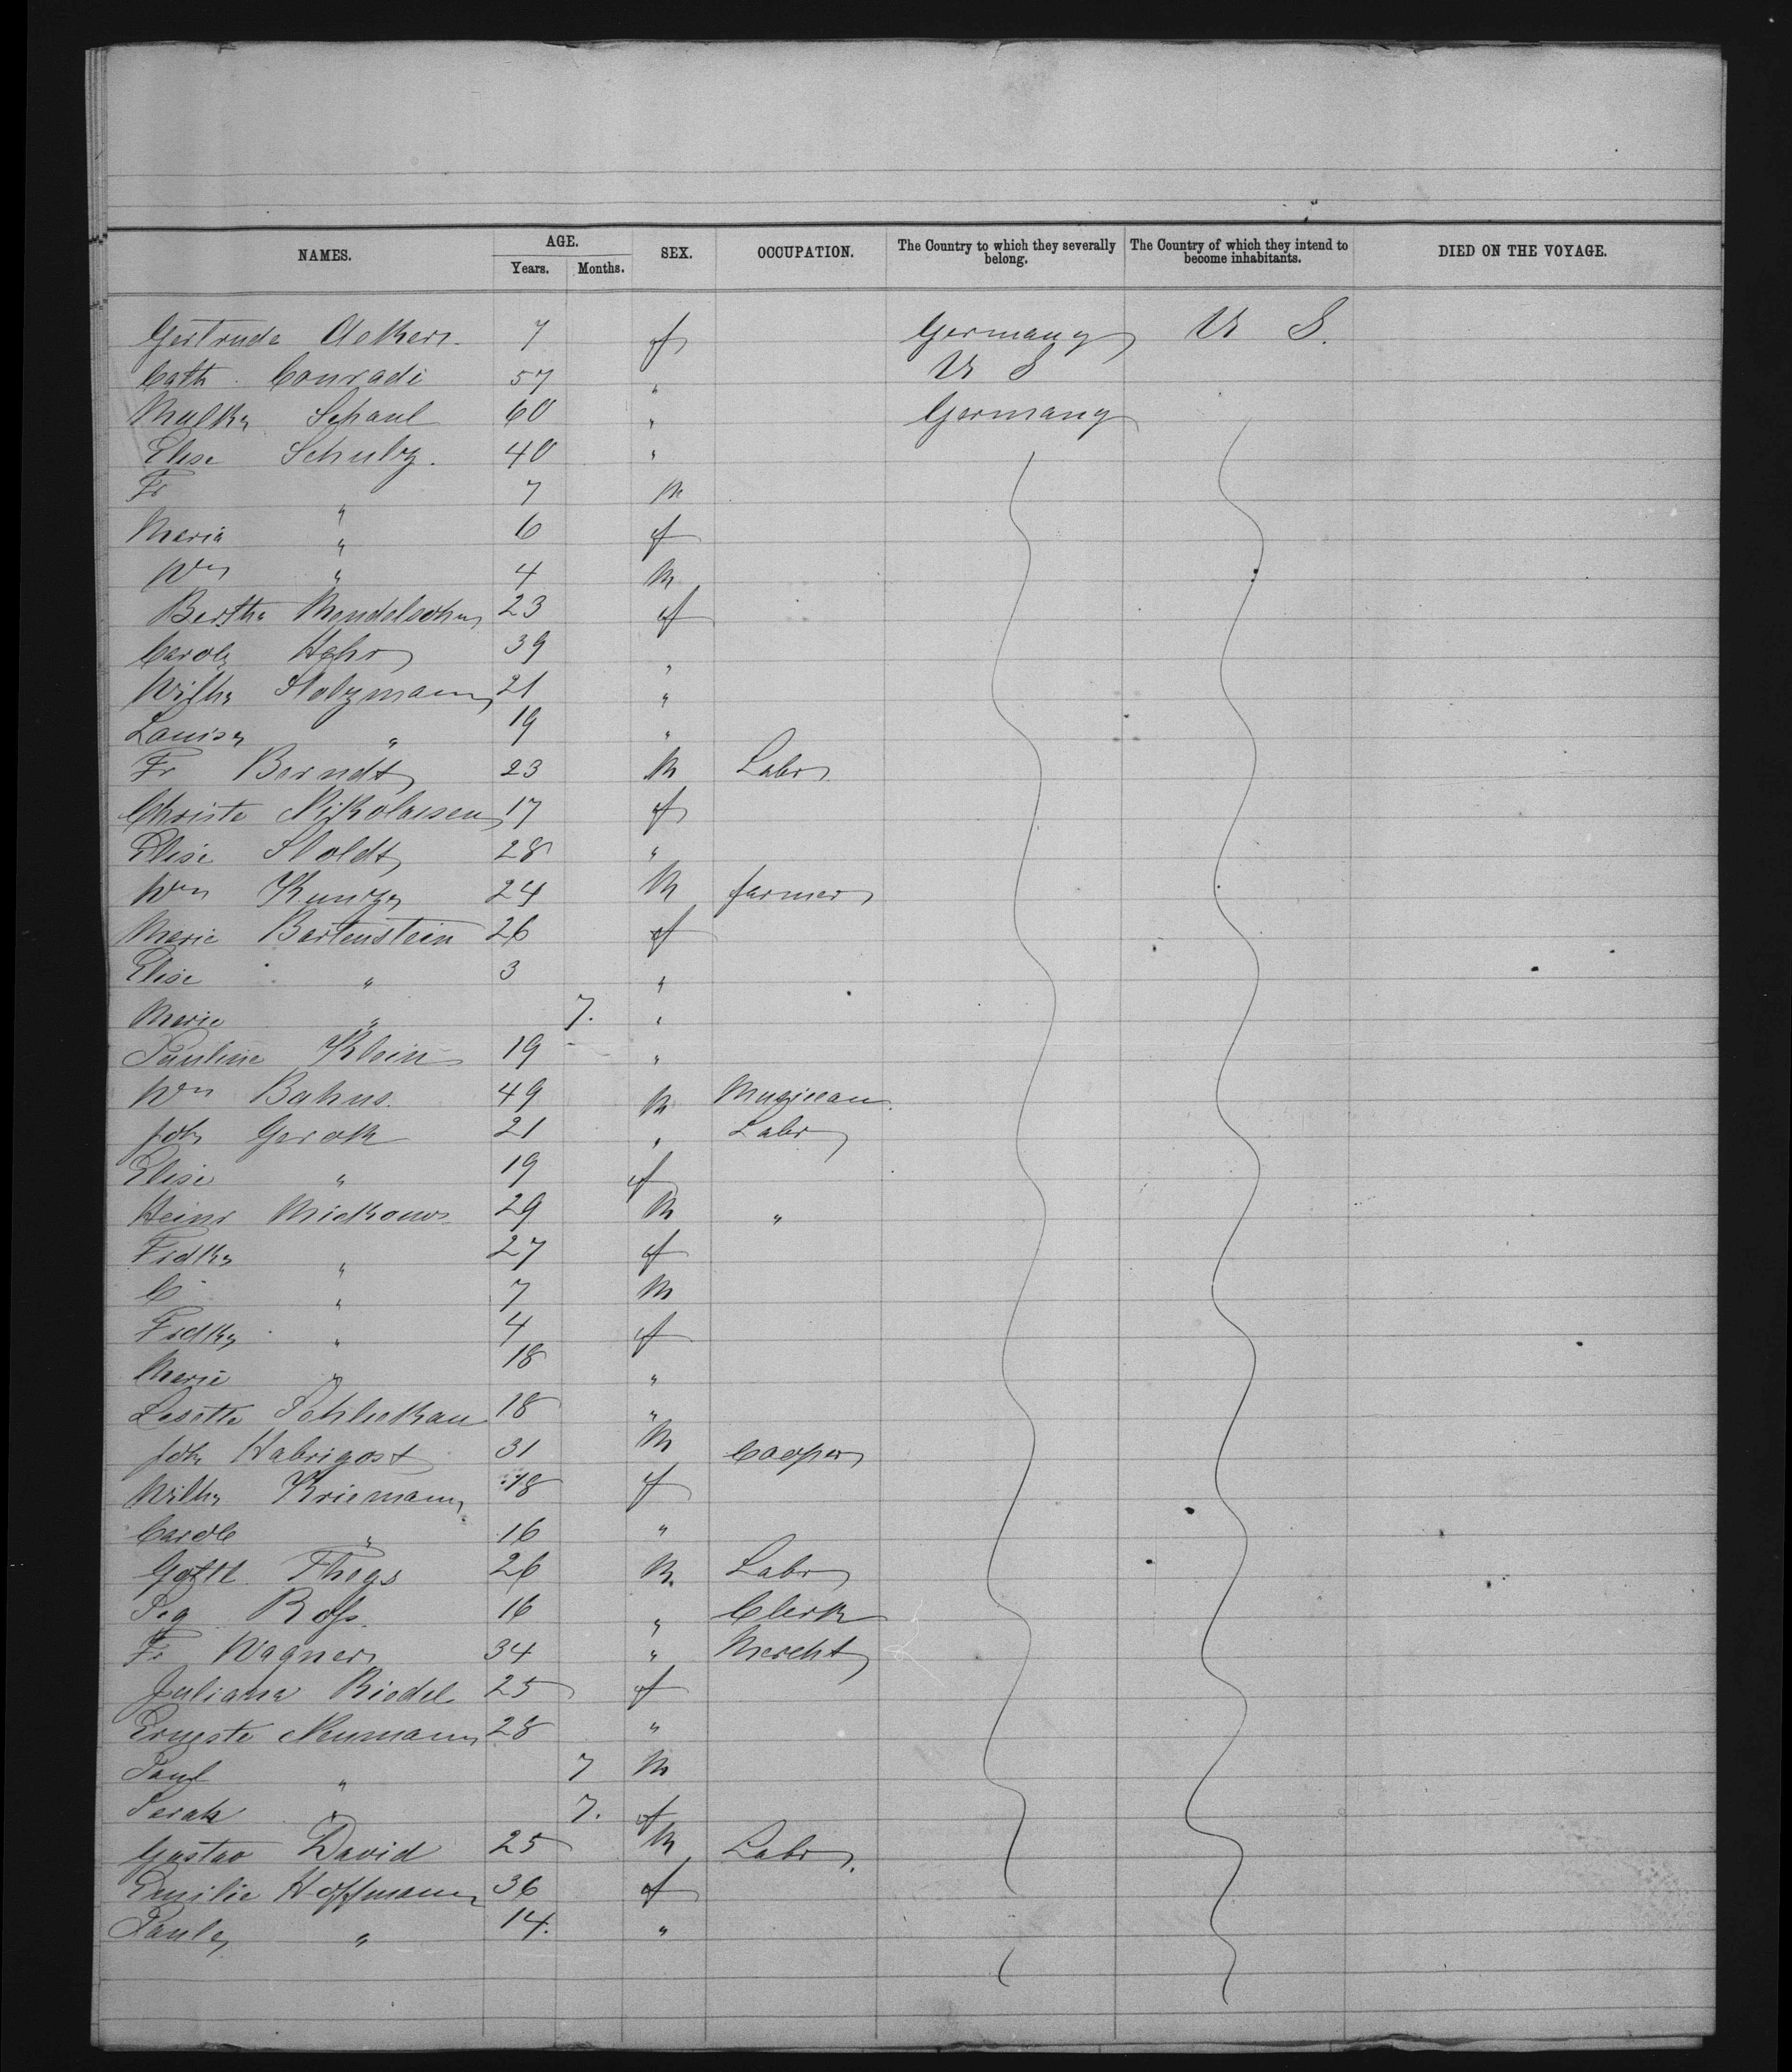 NAMES. AGE. Years. Months. SEX. OCCUPATION. The Country to which they severally belong. The Country of which they intend to become inhabitants. DIED ON THE VOYAGE.
Gertrude 7 f Germany U S.
Cath. Conradi 57 " U S
Malke Schaul 60 " Germany
Elise Schulz. 40 "
Fr " 7 m
Maria " 6 f
Wm " 4 m
Bertha Mendelsohn 23 f
Carole Hehr 39 "
Wilhe Stolzmann 21 "
Louise " 19 "
Fr Berndt 23 m Labr
Christe Nikolaisen 17 f
Elise Stoldt 28 "
Wm Kunze 24 m farmer
Marie Bartenstein 26 f
Elise " 3 "
Marie " 7. "
Pauline Klein 19 "
Wm Bahns. 49 m Musician
Joh Gerok 21 " Labr
Elise " 19 f
Heinr 29 m "
Fredke " 27 f
C " 7 m
Fredke " 4 f
Marie " 18 "
Lisette Schliekau 18 "
Joh Habrigost 31 m Cooper
Wilhe Kriemann 18 f
Carole " 16 "
Gottl. Thegs 26 m. Labr
Sig Ross. 16 " Clerk
Fr Wagner 34 " Mercht
Juliana Riedel 25 f
Erneste Neumann 28 "
Paul " 7 m
Sarah " 7. f
Gustav David 25 m Labr.
Emilie Hoffmann 36 f
Paule " 14. "